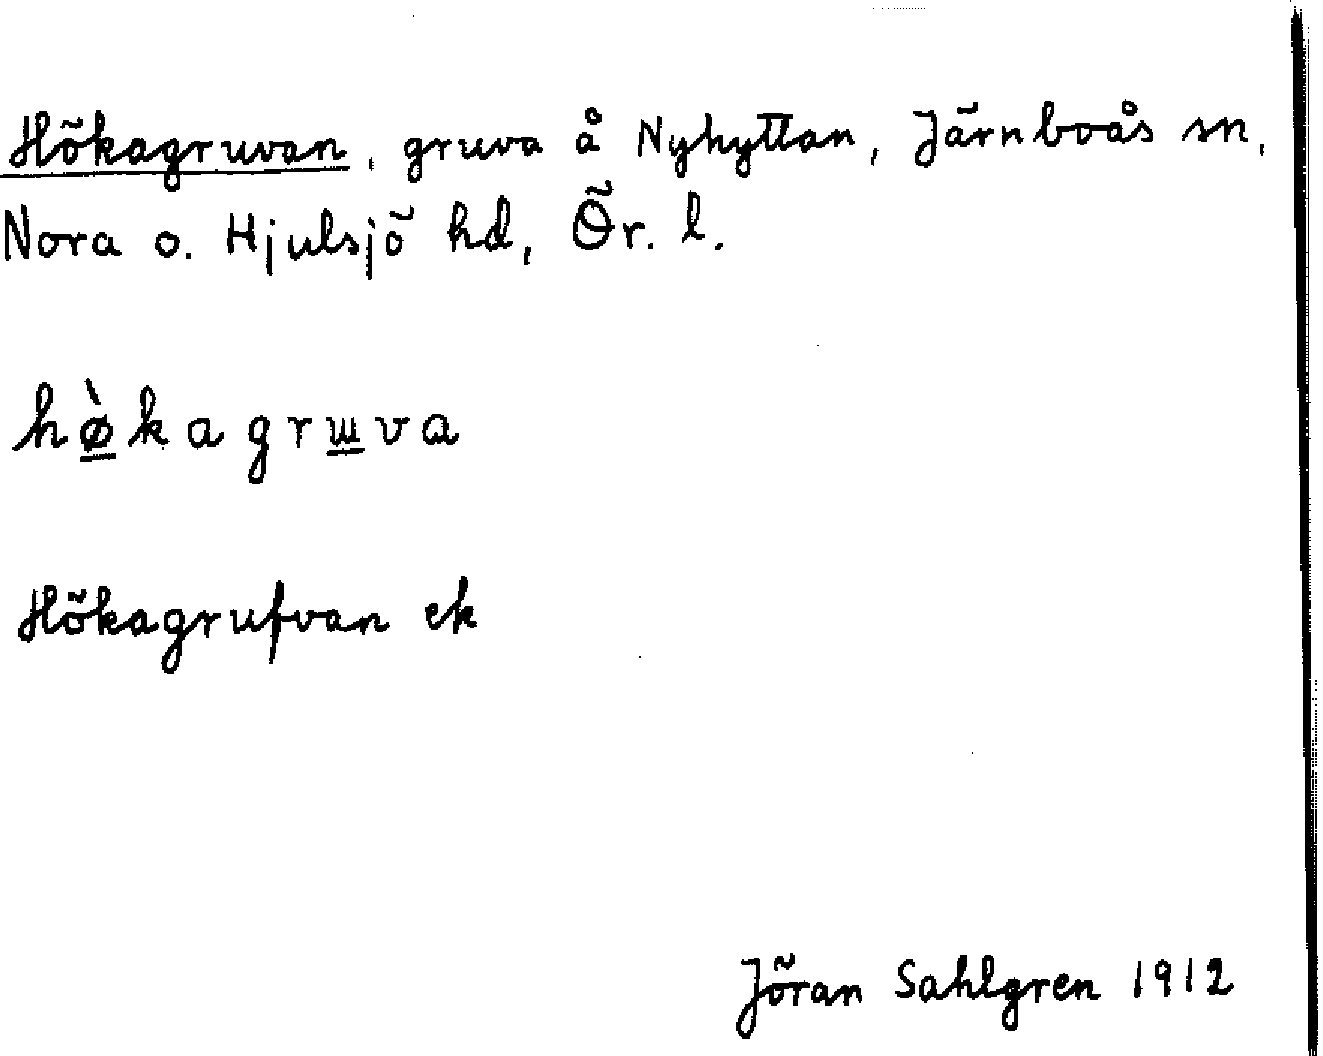 Hökagruvan, gruva å Nyhyttan, Järnboås sn,
Nora o. Hjulsjö hd, Ör. l.
hø̲̀kagrɯ̲va
Hökagrufvan ek
Jöran Sahlgren 1912